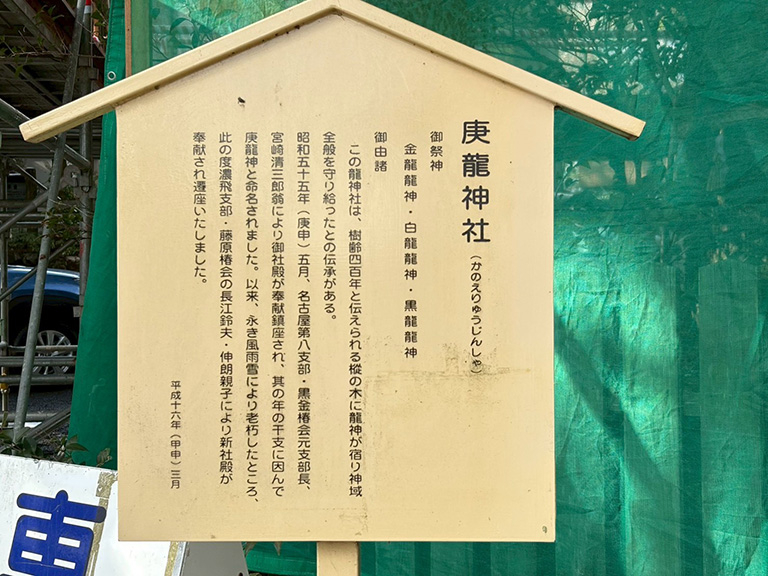 庚龍神社(かのえりゅうじんしゃ)
御祭神
金龍龍神・白龍龍神・黒龍龍神
御由諸
この龍神社は、樹齢四百年と伝えられる樅の木に龍神が宿り神域
全般を守り給ったとの伝承がある。
昭和五十五年(庚申)五月、名古屋第八支部・黒金椿会元支部長、
宮崎清三郎翁により御社殿が奉献鎮座され、其の年の干支に因んで
庚龍神と命名されました。以来、永き風雨雪により老朽したところ、
此の度濃飛支部・藤原椿会の長江鈴夫・伸朗親子により新社殿が
奉献され遷座いたしました。
平成十六年(甲申)三月